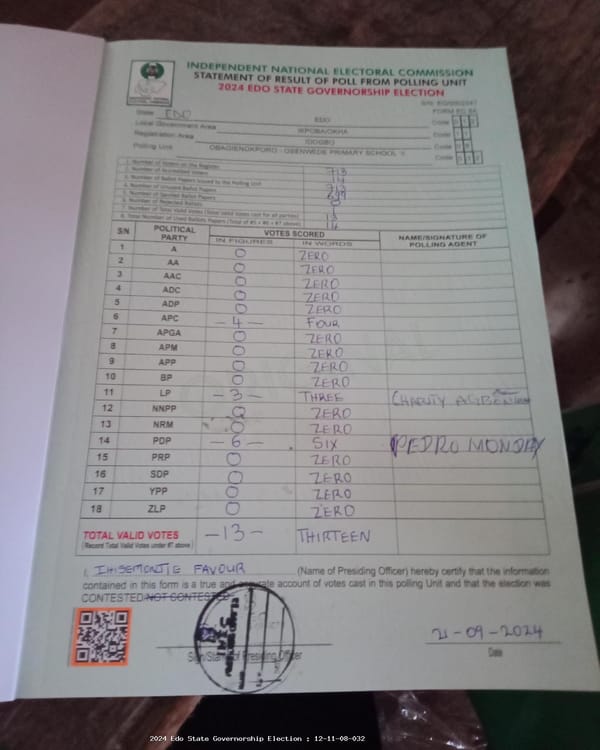 INDEPENDENT NATIONAL ELECTORAL COMMISSION
STATEMENT OF RESULT OF POLL FROM POLLING UNIT
2024 EDO STATE GOVERNORSHIP ELECTION
FORM EC 8A
State EDO EDO Code
Local Government Area IKPOBA/OKHA Code
Registration Area IDOGBO Code
Polling Unit OBAGIENOKPORO - OSENWEDE PRIMARY SCHOOL II Code
1. Number of Voters on the Register 713
2. Number of Accredited Voters 14
3. Number of Ballot Papers Issued to the Polling Unit 713
4. Number of Unused Ballot Papers 699
5. Number of Spoiled Ballot Papers 0
6. Number of Rejected Ballots 1
7. Number of Total Valid Votes (Total valid votes cast for all parties) 13
8. Total Number of Used Ballot Papers (Total of #5 + #6 + #7 above) 14
S/N POLITICAL PARTY VOTES SCORED NAME/SIGNATURE OF POLLING AGENT
IN FIGURES IN WORDS
1 A 0 ZERO
2 AA 0 ZERO
3 AAC 0 ZERO
4 ADC 0 ZERO
5 ADP 0 ZERO
6 APC -4- FOUR
7 APGA 0 ZERO
8 APM 0 ZERO
9 APP 0 ZERO
10 BP 0 ZERO
11 LP -3- THREE CHARITY
12 NNPP 0 ZERO
13 NRM 0 ZERO
14 PDP -6- SIX PEDRO MONDAY
15 PRP 0 ZERO
16 SDP 0 ZERO
17 YPP 0 ZERO
18 ZLP 0 ZERO
TOTAL VALID VOTES -13- THIRTEEN
(Record Total Valid Votes under #7 above)
I, IHISEMONTIE FAVOUR (Name of Presiding Officer) hereby certify that the information
contained in this form is a true and accurate account of votes cast in this polling Unit and that the election was
CONTESTED/NOT CONTESTED
21-09-2024
Sign/Stamp of Presiding Officer Date
2024 Edo State Governorship Election : 12-11-08-032